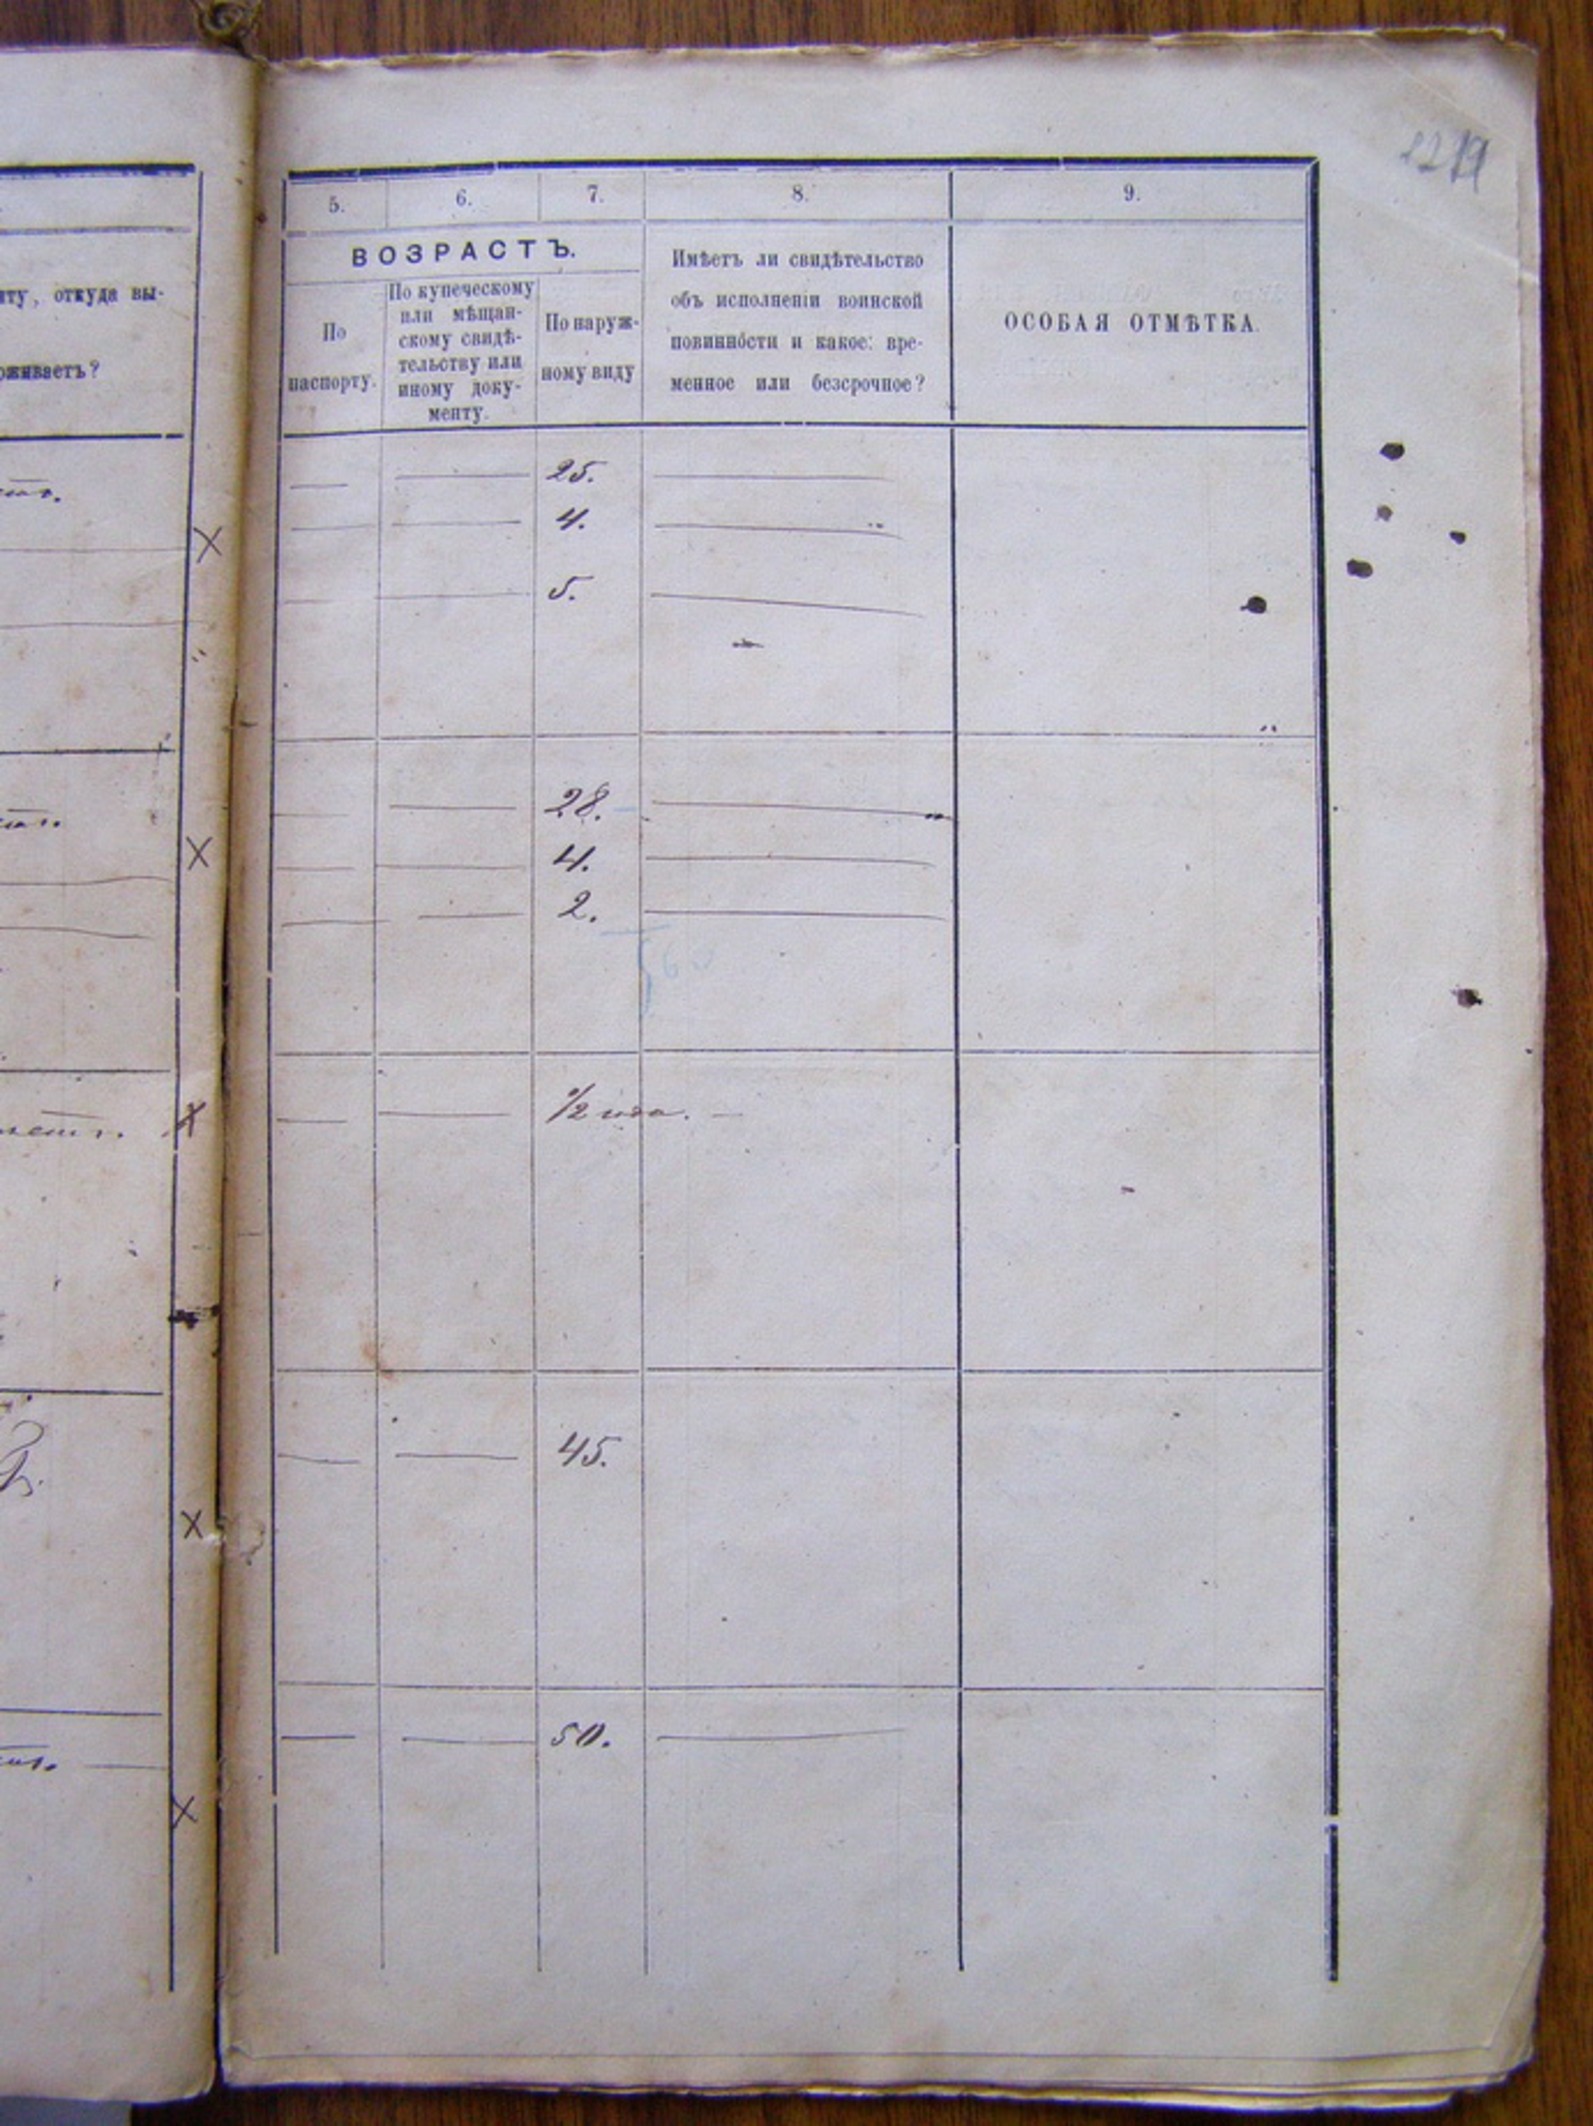 5. 6. 7. 8. 9.
ВОЗРАСТЪ.
По
паспорту.
По купеческому
или мѣщан-
скому свидѣ-
тельству или
иному доку-
менту.
По наруж-
ному виду
Имѣетъ ли свидѣтельство
объ исполненіи воинской
повинности и какое: вре-
менное или безсрочное?
ОСОБАЯ ОТМѢТКА.
откуда вы-
25.
4.
5.
28.
4.
2.
1/2 года.
45.
50.